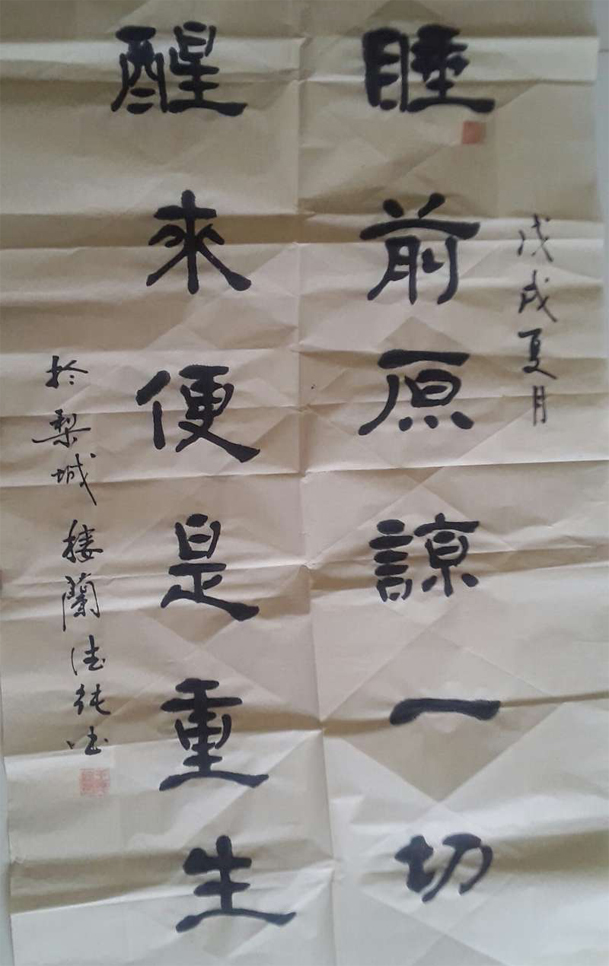 戊戌夏月
睡前原諒一切
醒來便是重生
於梨城 楼蘭